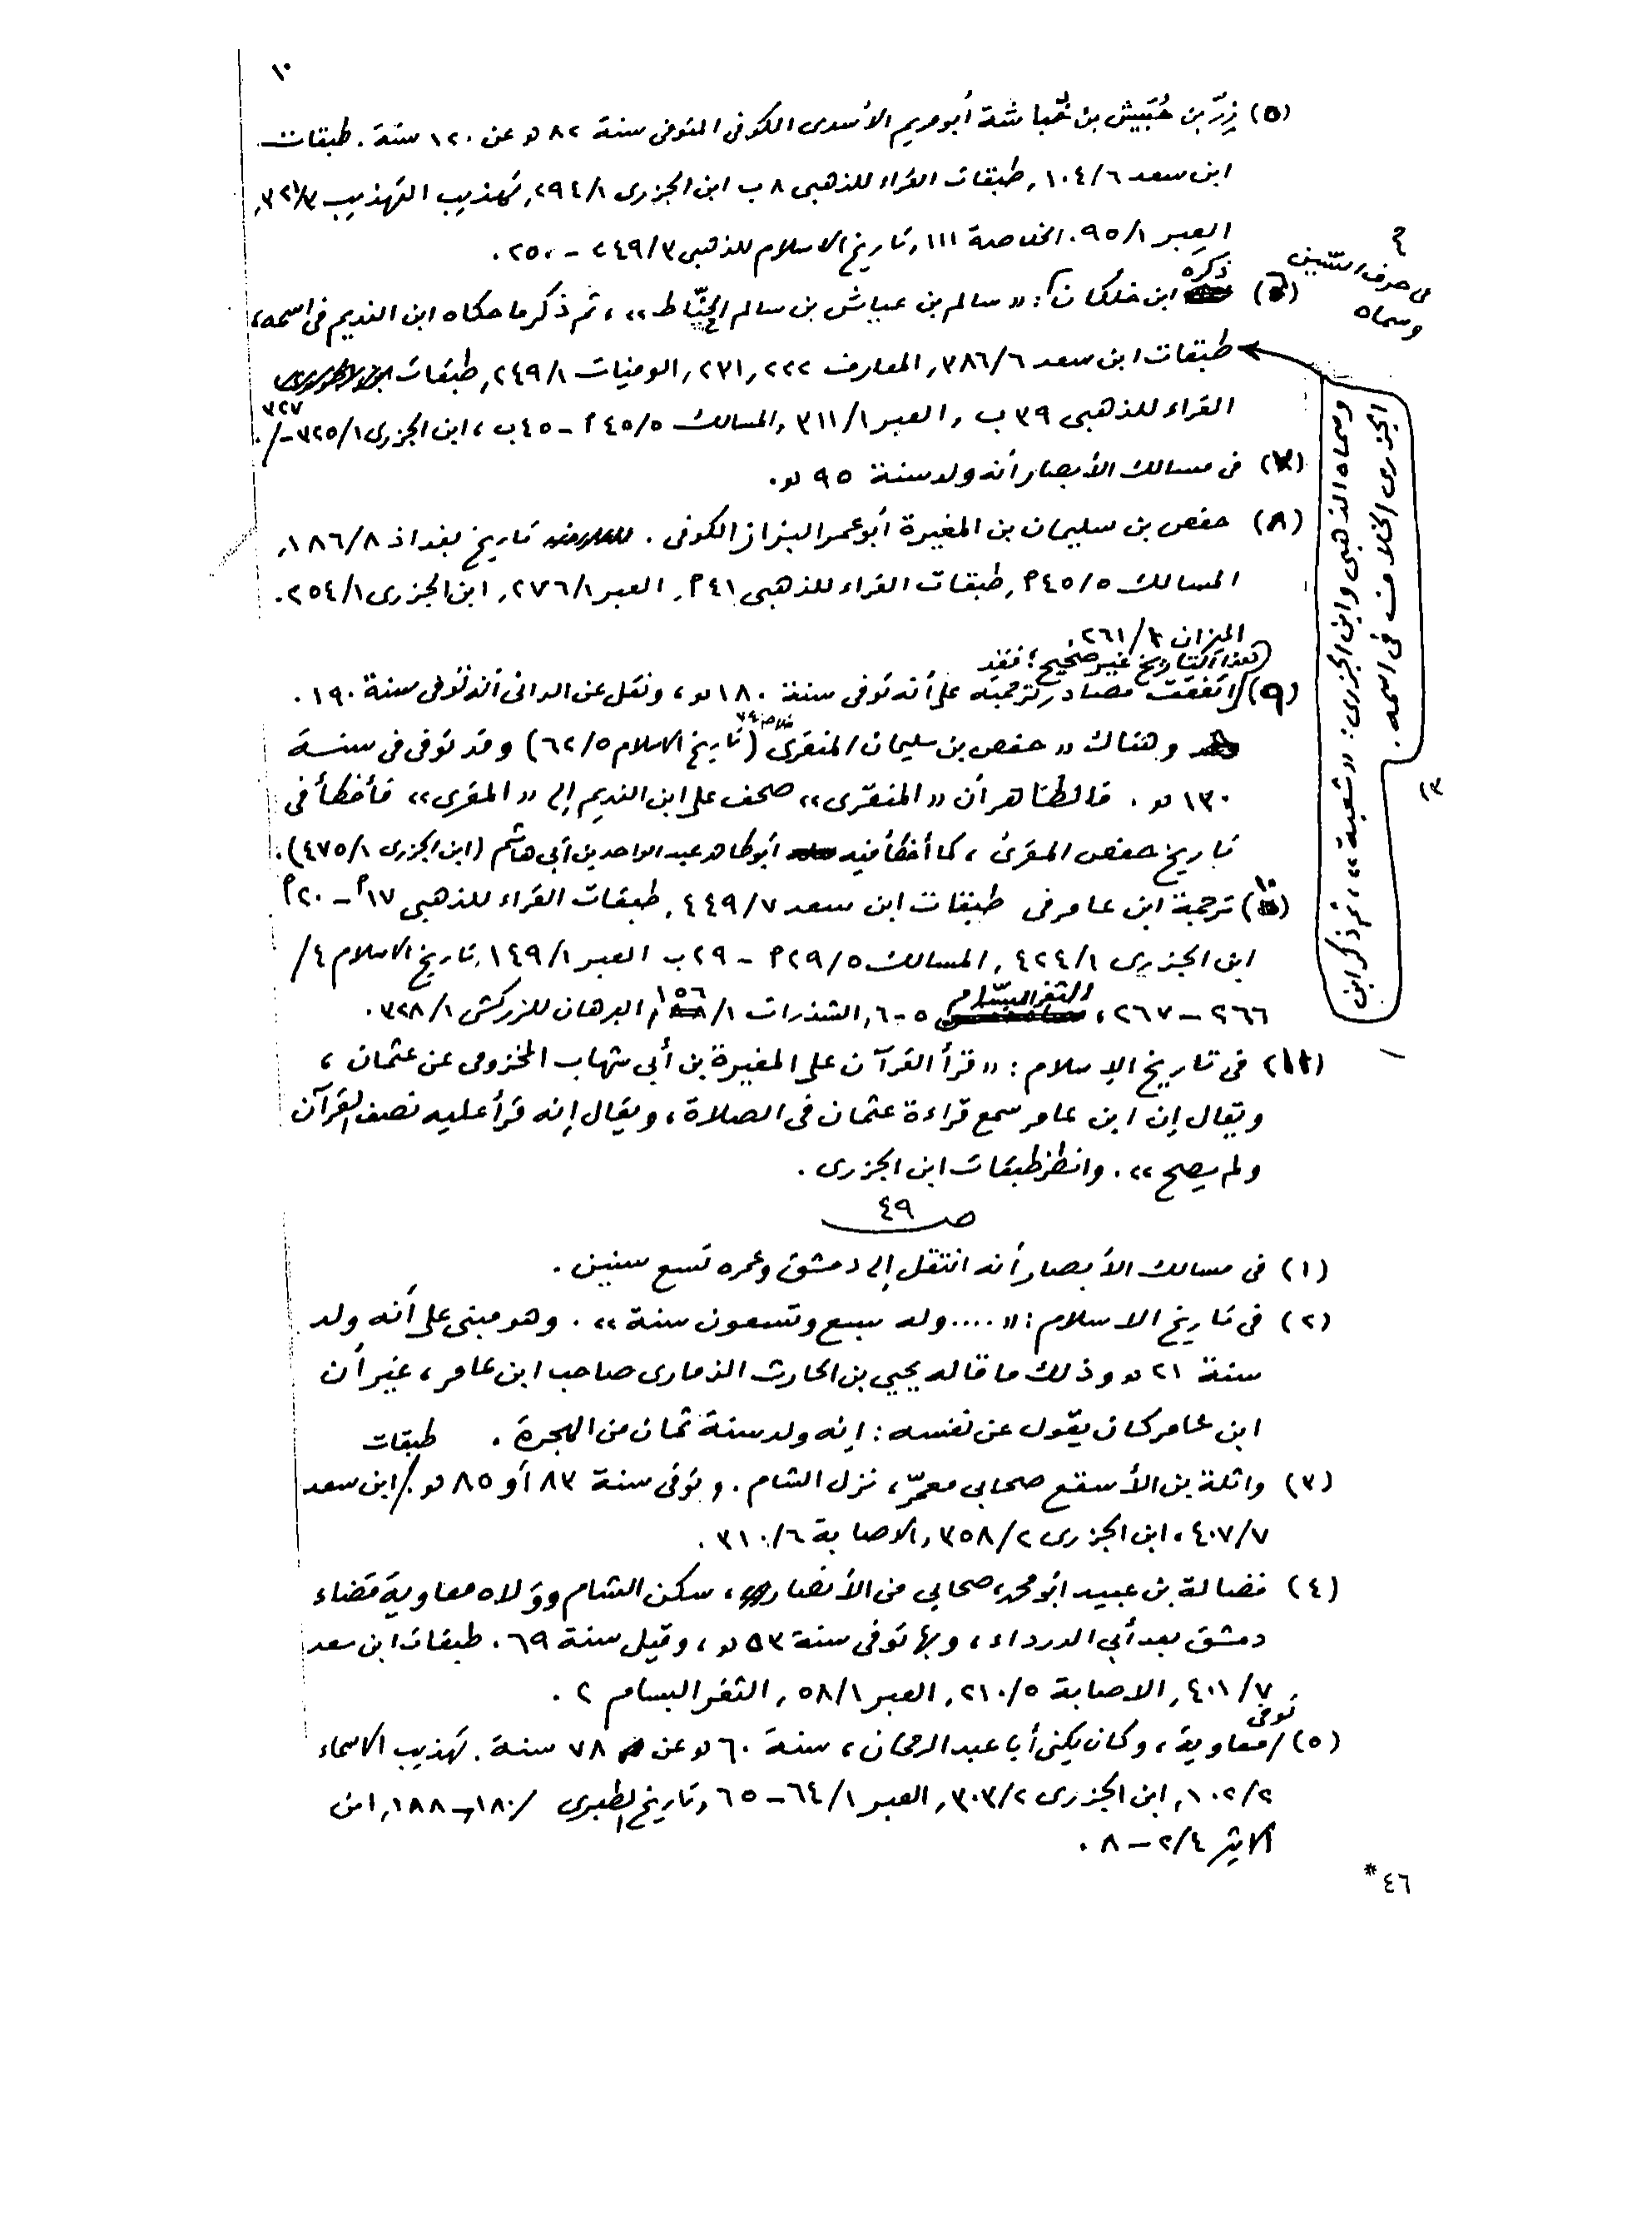 ١٠
(٥) زِرّ بن حُبَيش بن حُباشة أبو مريم الأسدى الكوفى المتوفى سنة ٨٢ هـ عن ١٢٠ سنة . طبقات
ابن سعد ١٠٤/٦ , طبقات القراء للذهبى ٨ ب ابن الجزرى ٢٩٤/١ , تهذيب التهذيب ٣٢١/٣ ,
العبر ٩٥/١ . الخلاصة ١١١ , تاريخ الاسلام للذهبى ٢٤٩/٣ – ٢٥٠ .
(٦) ذكره ابن خلكان فى حرف الشين وسماه : « سالم بن عياش بن سالم الحنّاط » ، ثم ذكر ما حكاه ابن النديم فى اسمه ،
وسماه الذهبى وابن الجزرى : « شعبة » ، ثم ذكر ابن
الجزرى الخلاف فى اسمه .
طبقات ابن سعد ٣٨٦/٦ , المعارف ٢٢٢ , ٢٧١ , الوفيات ٢٤٩/١ , طبقات
القراء للذهبى ٣٩ ب , العبر ٣١١/١ , المسالك ٤٥/٥ ٢ – ٤٥ ب ، ابن الجزرى ٣٢٥/١ – ٣٢٧ .
(٧) فى مسالك الأبصار أنه ولد سنة ٩٥ هـ .
(٨) حفص بن سليمان بن المغيرة أبو عمر البزاز الكوفى . تاريخ بغداد ١٨٦/٨ ,
المسالك ٤٥/٥ ٢ , طبقات القراء للذهبى ٤١ ٢ , العبر ٢٧٦/١ , ابن الجزرى ٢٥٤/١ .
الميزان ٢٦١/٢ .
(٩) هذا التاريخ غير صحيح ؛ فقد اتفقت مصادر ترجمته على أنه توفى سنة ١٨٠ هـ ، ونقل عن الدانى أنه توفى سنة ١٩٠ .
وهناك « حفص بن سليمان المنقرى (تاريخ الاسلام ٦٢/٥) وقد توفى فى سنة
١٣٠ هـ . فالظاهر أن « المنقرى » صحف على ابن النديم إلى « المقرى » فأخطأ فى
تاريخ حفص المقرئ ، كما أخطأ فيه أبو طاهر عبد الواحد بن أبى هاشم (ابن الجزرى ٤٧٥/١) .
(١٠) ترجمة ابن عامر فى طبقات ابن سعد ٤٤٩/٧ , طبقات القراء للذهبى ١٧ ٢ – ٢٠ ٢
ابن الجزرى ٤٢٤/١ , المسالك ٢٩/٥ ٢ – ٢٩ ب العبر ١٤٩/١ , تاريخ الاسلام ٤/
٢٦٦ – ٢٦٧ ، الثغر البسّام ٥ - ٦ , الشذرات ١٥٦/١ , البرهان للزركشى ٣٢٨/١ .
(١١) فى تاريخ الإسلام : « قرأ القرآن على المغيرة بن أبى شهاب المخزومى عن عثمان ،
ويقال إن ابن عامر سمع قراءة عثمان فى الصلاة ، ويقال إنه قرأ عليه نصف القرآن
ولم يصح » . وانظر طبقات ابن الجزرى .
صـ ٤٩
(١) فى مسالك الأبصار أنه انتقل إلى دمشق وعمره تسع سنين .
(٢) فى تاريخ الاسلام : « .... وله سبع وتسعون سنة » . وهو مبنى على أنه ولد
سنة ٢١ هـ وذلك ما قاله يحيى بن الحارث الذمارى صاحب ابن عامر ، غير أن
ابن عامر كان يقول عن نفسه : إنه ولد سنة ثمان من الهجرة .
(٣) واثلة بن الأسقع صحابى معمّر ، نزل الشام . وتوفى سنة ٨٣ أو ٨٥ هـ . طبقات ابن سعد
٤٠٧/٧ ، ابن الجزرى ٣٥٨/٢ , الاصابة ٣١٠/٦ .
(٤) فضالة بن عبيد ابو محمد ، صحابى من الأنصار ، سكن الشام وولاه معاوية قضاء
دمشق بعد أبى الدرداء ، وبها توفى سنة ٥٣ هـ ، وقيل سنة ٦٩ . طبقات ابن سعد
٤٠١/٧ , الاصابة ٢١٠/٥ , العبر ٥٨/١ , الثغر البسام ٢ .
(٥) توفى معاوية ، وكان يكنى أبا عبد الرحمان ، سنة ٦٠ هـ عن ٧٨ سنة . تهذيب الاسماء
١٠٢/٢ , ابن الجزرى ٣٠٣/٢ , العبر ٦٤/١ – ٦٥ , تاريخ الطبرى /١٨٠ – ١٨٨ , ابن
الاثير ٢/٤ – ٨ .
٤٦ *